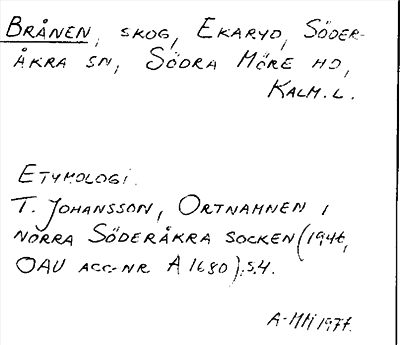 BRÅNEN, SKOG, EKARYD, SÖDER-
ÅKRA SN, SÖDRA MÖRE HD,
KALM. L.
ETYMOLOGI.
T. JOHANSSON, ORTNAMNEN I
NORRA SÖDERÅKRA SOCKEN (1946,
OAU ACC-NR A 1680), S. 4.
1977.